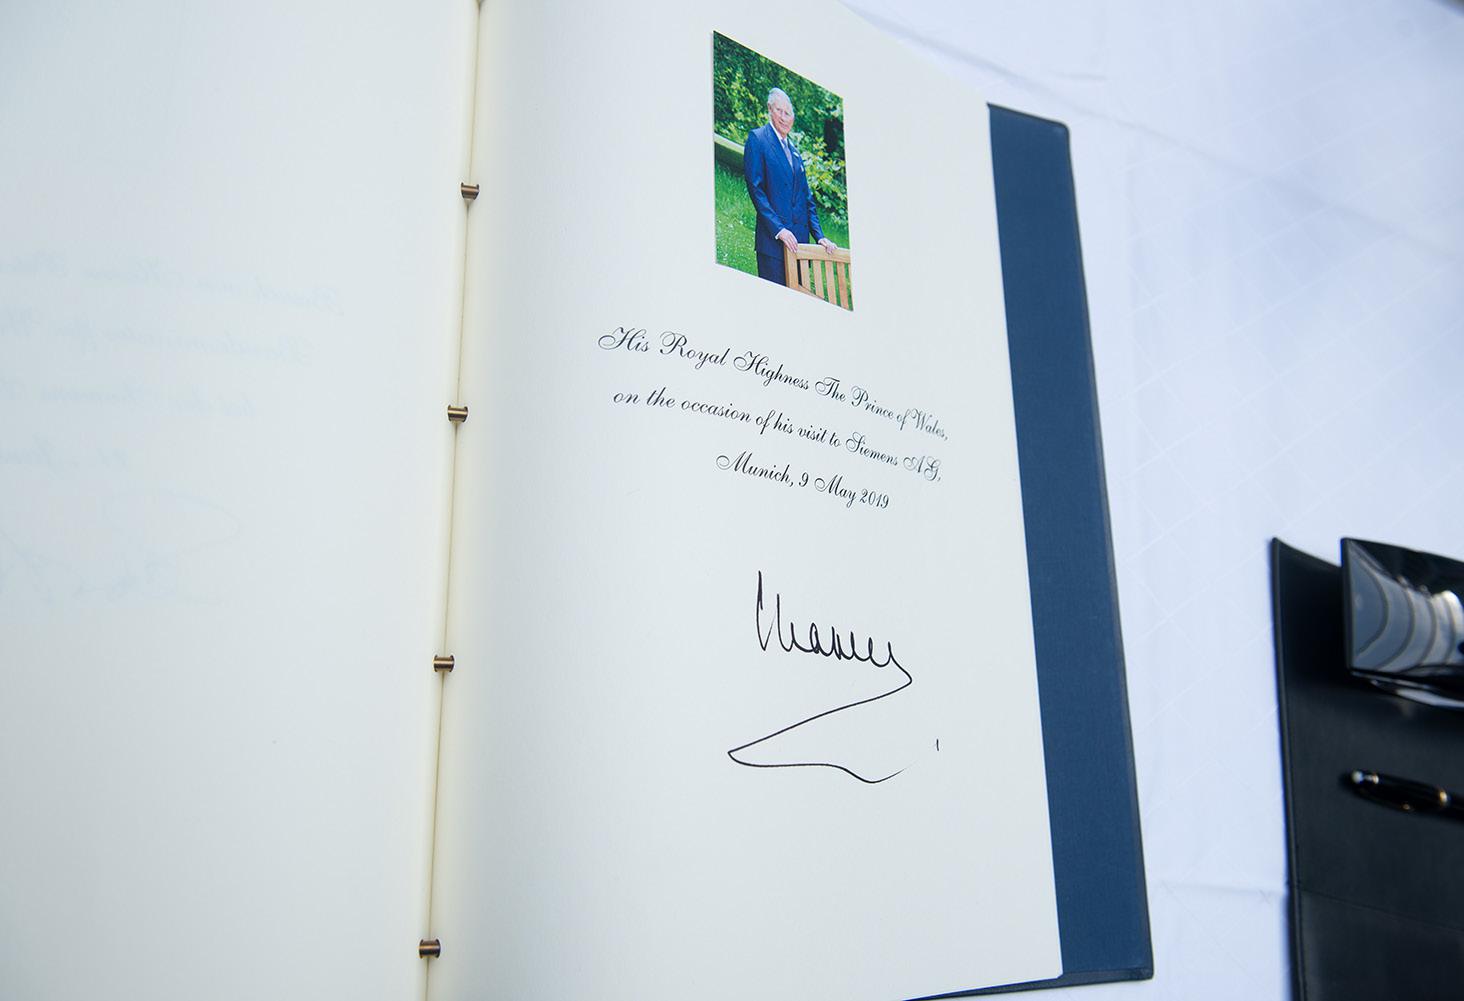 His Royal Highness The Prince of Wales,
on the occasion of his visit to Siemens AG,
Munich, 9 May 2019
Charles